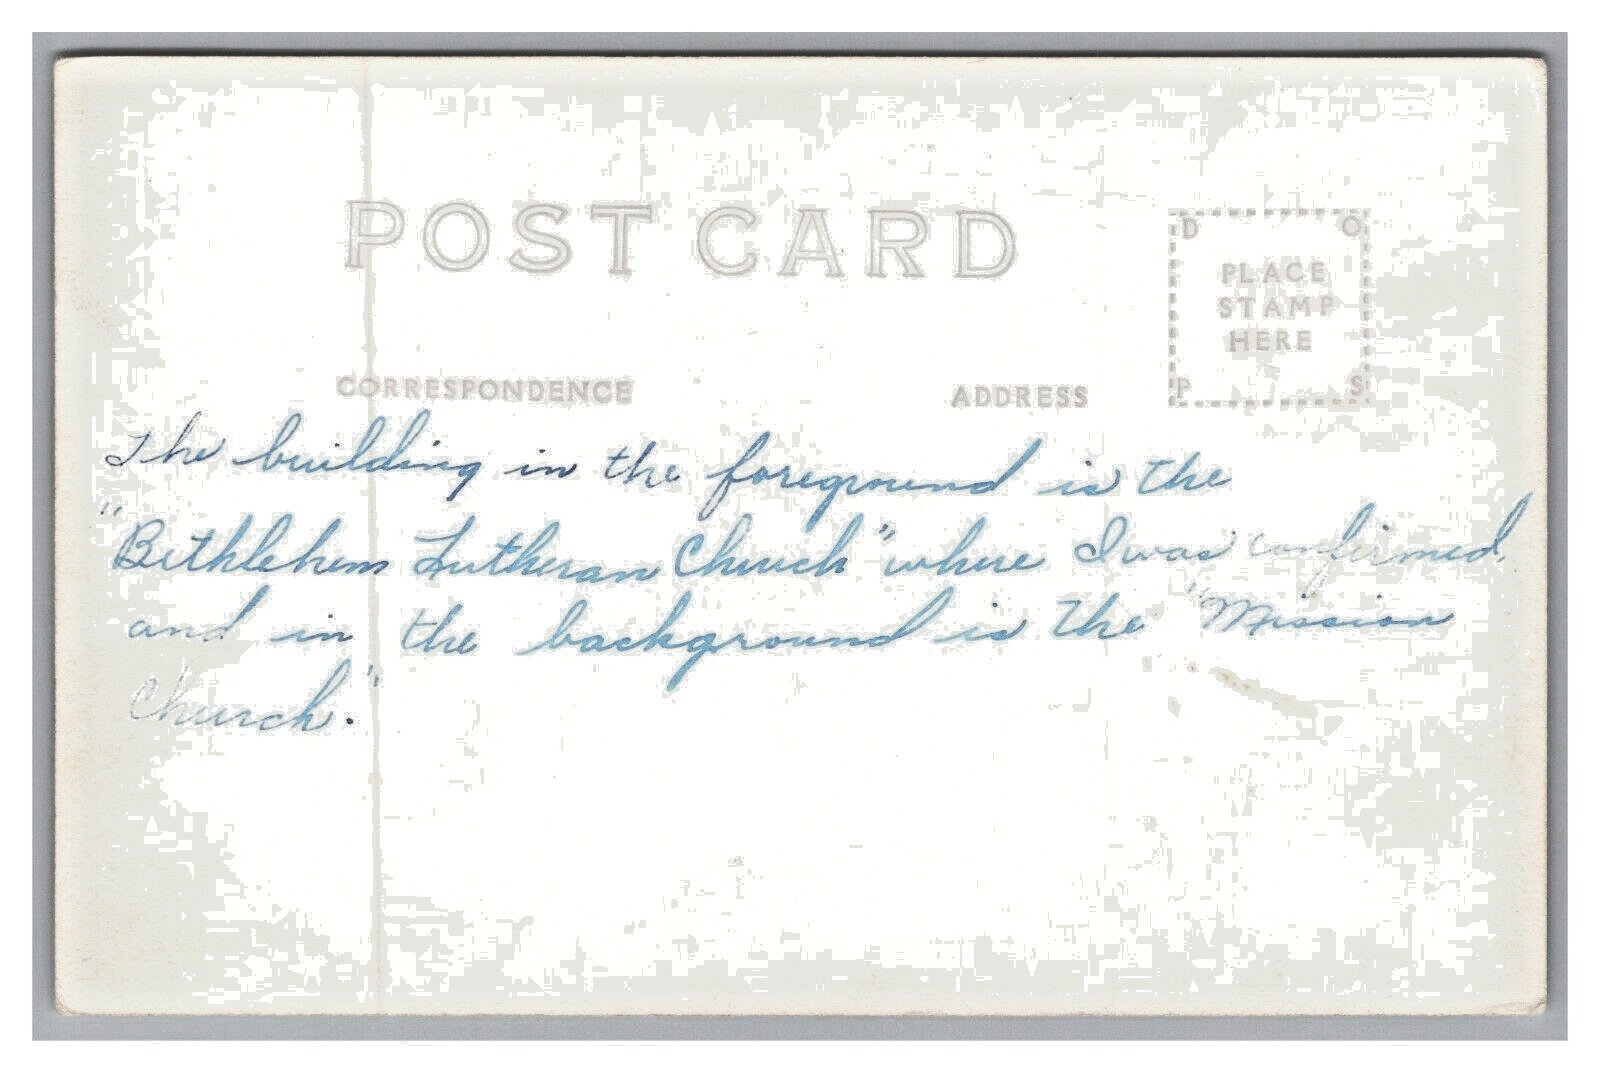 POST CARD
D O
PLACE
STAMP
HERE
P S
CORRESPONDENCE ADDRESS
The building in the foreground is the
"Bethlehem Lutheran Church" where I was confirmed,
and in the background is the "Mission
Church".